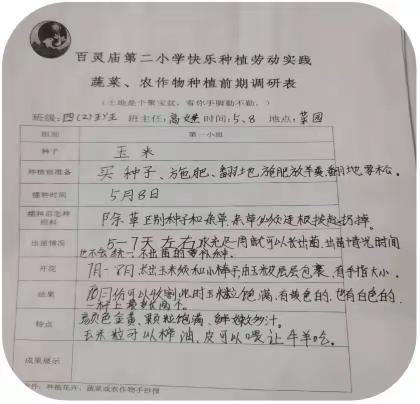 百灵庙第二小学快乐种植劳动实践
蔬菜、农作物种植前期调研表
(土地是个聚宝盆，看你手脚勤不勤。)
班级:四(2)班 班主任:高 时间:5.8 地点:菜园
组别 第一小组
种子 玉米
种植前准备 买种子、施肥、翻地,施肥放羊粪翻地要松。
播种时间 5月8日
播种后怎样照料 除草区别种籽和杂草,杂草必须连根拔起扔掉。
出苗情况 5-7天左右水充足周就可以长出苗,出苗情况时间
也不会统一,不出苗的重补种。
开花 7月-8月长出玉米须和小棒子由玉米皮层层包裹,有手指大小。
结果 10月份可以收割此时玉米粒饱满,有黄色的,也有白色的,
一杆上最多两个。
特点 颜色金黄,颗粒饱满、鲜嫩多汁。
玉米粒可以榨油,皮可以喂让牛羊吃。
成果展示
种植花卉、蔬菜或农作物手抄报